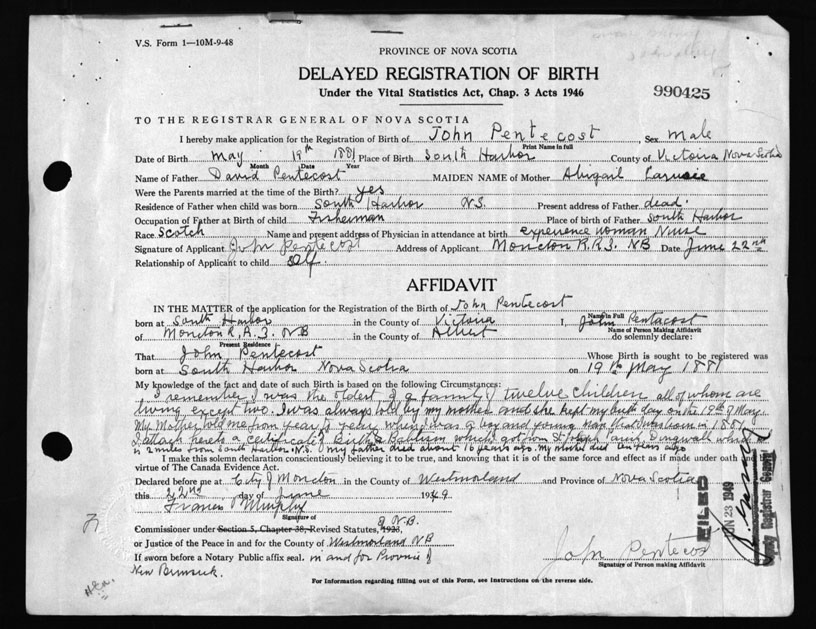 V.S. Form 1—10M-9-48
PROVINCE OF NOVA SCOTIA
DELAYED REGISTRATION OF BIRTH
Under the Vital Statistics Act, Chap. 3 Acts 1946
990425
TO THE REGISTRAR GENERAL OF NOVA SCOTIA
I hereby make application for the Registration of Birth of John Pentecost, Sex male
Print Name in full
Date of Birth May 19th 1881 Place of Birth South Harbor County of Victoria Nova Scotia
Month Date Year
Name of Father David Pentecost MAIDEN NAME of Mother Abigail
Were the Parents married at the time of the Birth? yes
Residence of Father when child was born South Harbor N.S. Present address of Father dead.
Occupation of Father at Birth of child Fisherman Place of birth of Father South Harbor
Race Scotch Name and present address of Physician in attendance at birth experience woman Nurse
Signature of Applicant John Pentecost Address of Applicant Moncton R.R.3. NB Date June 22nd
Relationship of Applicant to child Self
AFFIDAVIT
IN THE MATTER of the application for the Registration of the Birth of John Pentecost
born at South Harbor in the County of Victoria I, John Pentacost
Name in Full
Name of Person Making Affidavit
of Moncton R.R.3. NB in the County of Albert do solemnly declare:
Present Residence
That John Pentecost Whose Birth is sought to be registered was
born at South Harbor Nova Scotia on 19th May 1881
My knowledge of the fact and date of such Birth is based on the following Circumstances:
I remember I was the oldest of a family of twelve children all of whom are
living except two. I was always told by my mother and she kept my birth day on the 19th of May.
My Mother told me from year to year when I was a boy and young man that I was born in 1881
I attach hereto a certificate of Birth & Baptism which I got from St Joseph Dingwall which
is 2 miles from South Harbor N.S. My father died about 16 years ago. My mother died ten years ago
I make this solemn declaration conscientiously believing it to be true, and knowing that it is of the same force and effect as if made under oath and by
virtue of The Canada Evidence Act.
Declared before me at City of Moncton in the County of Westmorland and Province of Nova Scotia
this 22nd day of June 1949
Francis Murphy
Signature of
Commissioner under Section 5, Chapter 38, Revised Statutes, 1923, of N.B.
or Justice of the Peace in and for the County of Westmorland NB
If sworn before a Notary Public affix seal. in and for Province of
New Brunswick
John Pentecost
Signature of Person making Affidavit
FILED
JUN 23 1949
Deputy Registrar General
For Information regarding filling out of this Form, see Instructions on the reverse side.